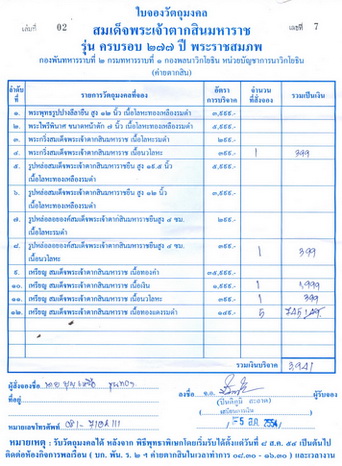 ใบจองวัตถุมงคล
เล่มที่ 02 เลขที่ 7
สมเด็จพระเจ้าตากสินมหาราช
รุ่น ครบรอบ ๒๗๗ ปี พระราชสมภพ
กองพันทหารราบที่ ๒ กรมทหารราบที่ ๑ กองพลนาวิกโยธิน หน่วยบัญชาการนาวิกโยธิน
(ค่ายตากสิน)
ลำดับที่ รายการวัตถุมงคลที่จอง อัตราการบริจาค จำนวนที่สั่งจอง รวมเป็นเงิน
๑. พระพุทธรูปปางลีลายืน สูง ๑๒ นิ้ว เนื้อโลหะทองเหลืองรมดำ ๓,๙๙๙.-
๒. พระไพรีพินาศ ขนาดหน้าตัก ๗ นิ้ว เนื้อโลหะทองเหลืองรมดำ ๕,๙๙๙.-
๓. พระกริ่งสมเด็จพระเจ้าตากสินมหาราช เนื้อโลหะรมดำ ๒๙๙.-
๔. พระกริ่งสมเด็จพระเจ้าตากสินมหาราช เนื้อนวโลหะ ๓๙๙.- 1 399
๕. รูปหล่อสมเด็จพระเจ้าตากสินมหาราชยืน สูง ๑๙.๕ นิ้ว ๕,๙๙๙.-
เนื้อโลหะทองเหลืองรมดำ
๖. รูปหล่อสมเด็จพระเจ้าตากสินมหาราชยืน สูง ๑๒ นิ้ว ๓,๙๙๙.-
เนื้อโลหะทองเหลืองรมดำ
๗. รูปหล่อลอยองค์สมเด็จพระเจ้าตากสินมหาราชยืนสูง ๔ ซม. ๒๙๙.-
เนื้อโลหะรมดำ
๘. รูปหล่อลอยองค์สมเด็จพระเจ้าตากสินมหาราชยืนสูง ๔ ซม. ๓๙๙.- 1 399
เนื้อนวโลหะ
๙. เหรียญ สมเด็จพระเจ้าตากสินมหาราช เนื้อทองคำ ๓๙,๙๙๙.-
๑๐. เหรียญ สมเด็จพระเจ้าตากสินมหาราช เนื้อเงิน ๑,๙๙๙.- 1 1,999
๑๑. เหรียญ สมเด็จพระเจ้าตากสินมหาราช เนื้อนวโลหะ ๓๙๙.- 1 399
๑๒. เหรียญ สมเด็จพระเจ้าตากสินมหาราช เนื้อทองแดงรมดำ ๑๔๙.- 5 745
รวมเงินบริจาค 3941
ผู้สั่งจองชื่อ ลงชื่อ ผู้รับจอง
ที่อยู่
-5 ส.ค. 2554
หมายเลขโทรศัพท์
หมายเหตุ : รับวัตถุมงคลได้ หลังจาก พิธีพุทธาภิเษกโดยเริ่มรับได้ตั้งแต่วันที่ ๔ ส.ค. ๕๔ เป็นต้นไป
ติดต่อห้องกิจการพลเรือน ( บก. พัน. ร. ๒ ฯ ค่ายตากสินในเวลาทำการ ๐๘.๓๐ - ๑๖.๓๐ ) และเวลางาน